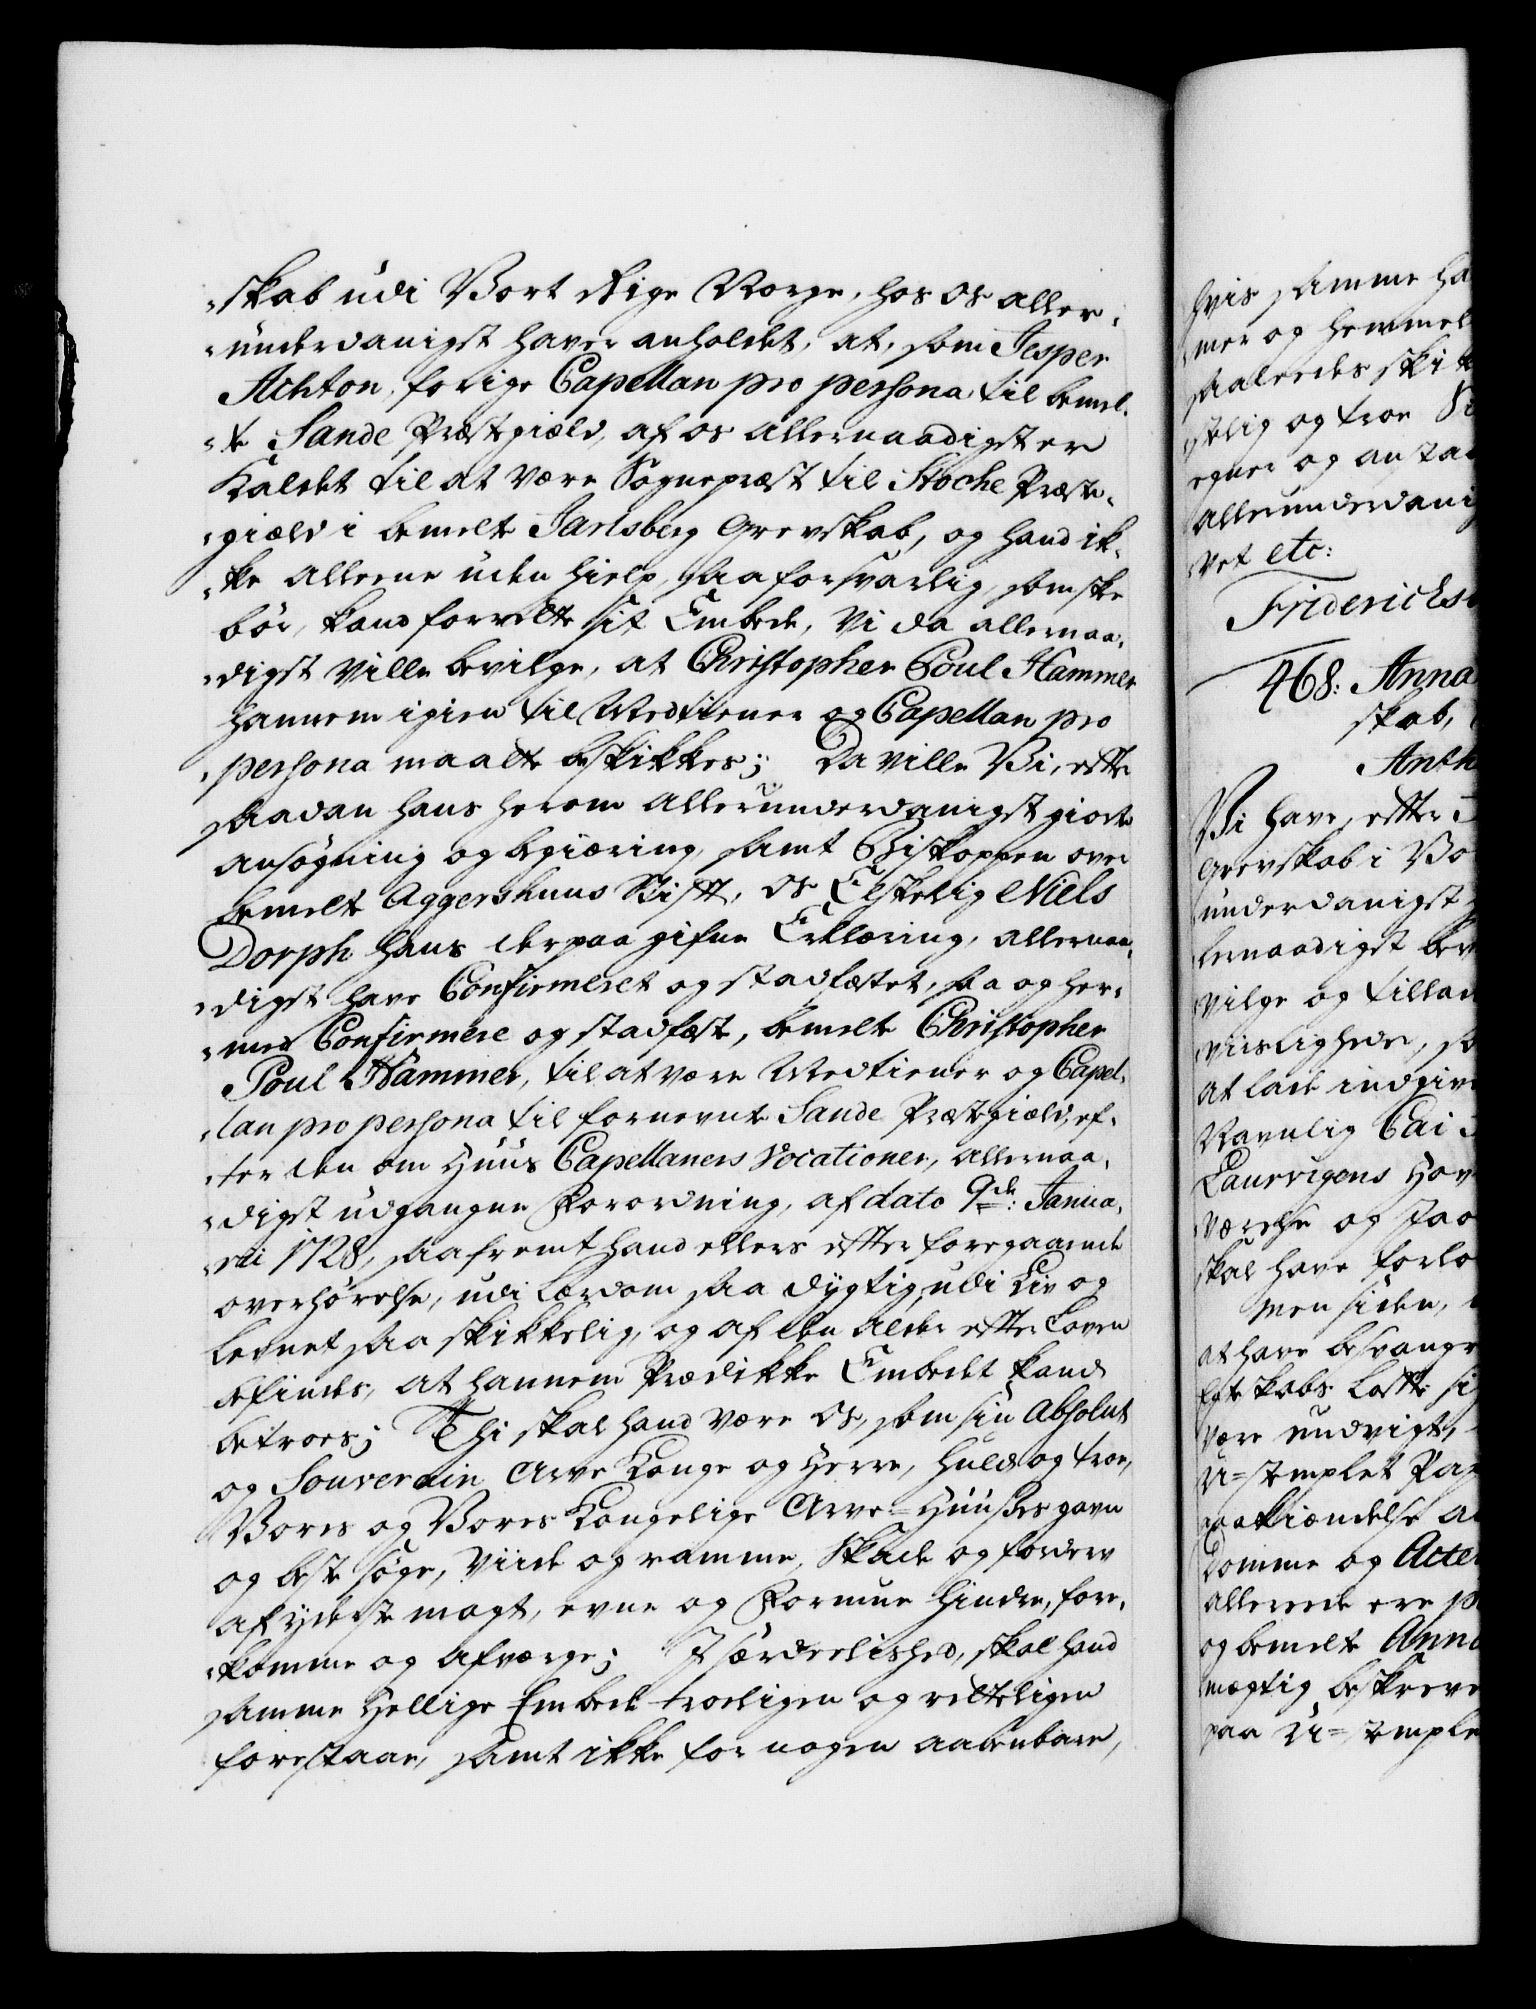 -skab udi Vort Rige Norge, hos os aller-
-underdanigst haver anholdet, at, som Jesper
Achton, forige Capellan pro persona til bemel-
-te Sande Præstegiæld, af os allernaadigst er
Kaldet til at være Sognepræst til Stoche Præste-
-giæld i bemelte Jarlsberg Grevskab, og hand ik-
-ke alleene uden hielp, saa forsvarlig, som skee
bör, kand forrette sit Embede, Vi da allernaa-
-digst Ville bevilge, at Christopher Poul Hammer
hannem igien til Medtiener og Capellan pro
-persona maatte beskikkes; Da ville Vi, efter
saadan hans herom allerunderdanigst giorte
ansögning og begiæring, samt Biskoppen over
bemelte Aggershuus Stift, os Elskelig Niels
Dorph hans derpaa gifne Erklæring, allernaa-
-digst have Confirmeret og stadfæstet, saa og her-
-med Confirmere og stadfæste, bemelte Christopher
Poul Hammer, til at være Medtiener og Capel-
-lan pro persona til fornevnte Sande Præstegiæld, ef-
-ter den om Huus Capellaners Vocationer, allernaa-
-digst udgangne Forordning, af dato 9de: Janua-
-rii 1728, saafremt hand ellers efter foregaaende
overhörelse, udi Lærdom saa dygtig, udi Liv og
Levnet saa skikkelig, og af den alder efter Loven
befindes, at hannem Prædikke Embedet kand
betroes; Thi skal hand være os, som sin Absolut
og Souverain Arve Konge og Herre, huld og troe,
Vores og Vores Kongelige Arve-Huuses gavn
og beste söge, Viide og ramme, Skade og forderv
af yderste magt, evne og Formue hindre, fore-
-komme og afværge; Iserdeelished, skal hand
samme Hellige Embede troeligen og retteligen
forestaae, samt ikke for nogen aabenbare,
hvis samme ha
mer og hemmel
saaledes skik
stelig og troe
egner og anstaa
allerunderdanig
vet etc:
Friderichs
468: Anna
skab,
Anth
Vi have, efter
Grevskab i Vo
underdanigst
lernaadigst bev
vilge og tillad
viislighede, so
at lade indgive
Navnlig Cai
Laurvigens Hov
værelse og
skal have forlo
Men siden,
at have besvangr
Egteskabs Löfte si
være undvigt,
U-stemplet Pap
paakiændelse a
Domme og Acte
allerede ere p
og bemelte Anna
mægtig beskreve
paa U-stemple